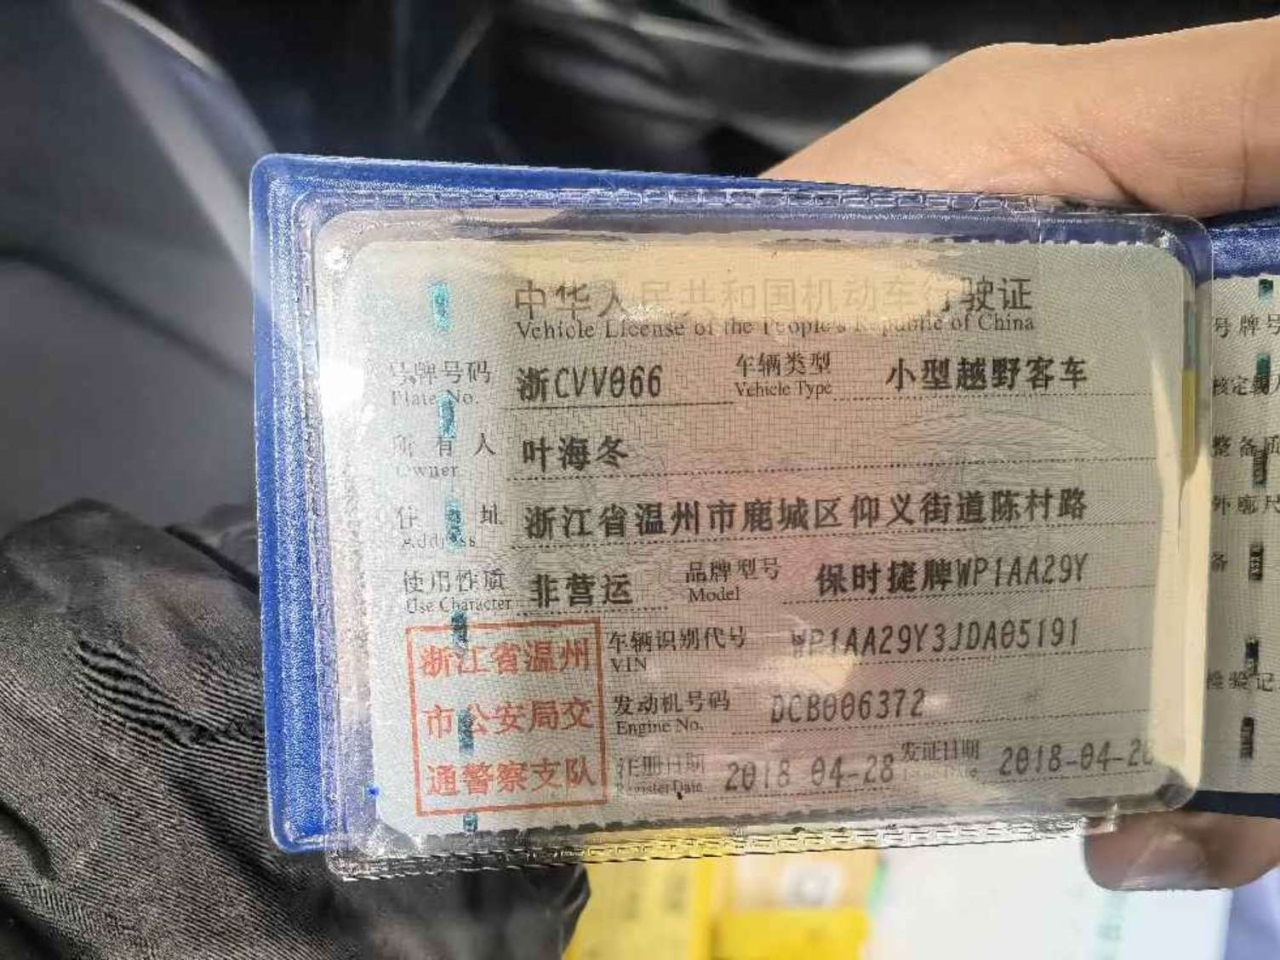 中华人民共和国机动车行驶证
Vehicle License of the People's Republic of China
号牌号码 浙CVV066 车辆类型 小型越野客车
Plate No. Vehicle Type
所有人 叶海冬
Owner
住址 浙江省温州市鹿城区仰义街道陈村路
Address
使用性质 非营运 品牌型号 保时捷牌WP1AA29Y
Use Character Model
浙江省温州
市公安局交
通警察支队
车辆识别代号 WP1AA29Y3JDA05191
VIN
发动机号码 DCB006372
Engine No.
注册日期 2018-04-28 发证日期 2018-04-2
Register Date Issue Date
号牌号
核定载
整备质
外廓尺
备
检验记